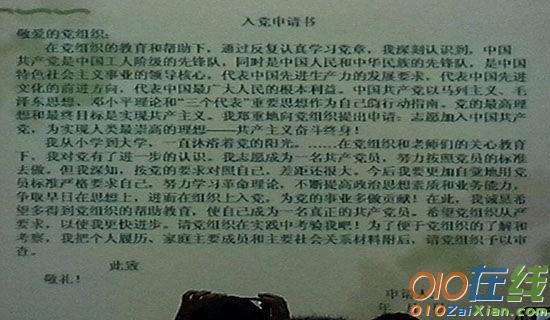 入党申请书
敬爱的党组织:
在党组织的教育和帮助下，通过反复认真学习党章，我深刻认识到，中国
共产党是中国工人阶级的先锋队，同时是中国人民和中华民族的先锋队，是中国
特色社会主义事业的领导核心，代表中国先进生产力的发展要求，代表中国先进
文化的前进方向，代表中国最广大人民的根本利益。中国共产党以马列主义、毛
泽东思想、邓小平理论和“三个代表”重要思想作为自己的行动指南。党的最高理
想和最终目标是实现共产主义。我郑重地向党组织提出申请：志愿加入中国共产
党，为实现人类最崇高的理想——共产主义奋斗终身！
我从小学到大学，一直沐浴着党的阳光。……在党组织和老师们的关心教育
下，我对党有了进一步的认识。我志愿成为一名共产党员，努力按照党员的标准
去做。但我深知，按党的要求对照自己，差距还很大。今后我要更加自觉地用党
员标准严格要求自己，努力学习革命理论，不断提高政治思想素质和业务能力，
争取早日在思想上，进而在组织上入党，为党的事业多做贡献！在此，我诚恳希
望多得到党组织的帮助教育，使自己成为一名真正的共产党员。希望党组织从严
要求，以使我更快进步。请党组织在实践中考验我吧！为了便于党组织的了解和
考察，我把个人履历、家庭主要成员和主要社会关系材料附后，请党组织予以审
查。
此致
敬礼！
申请人
年 月
010在线
010ZaiXian.com